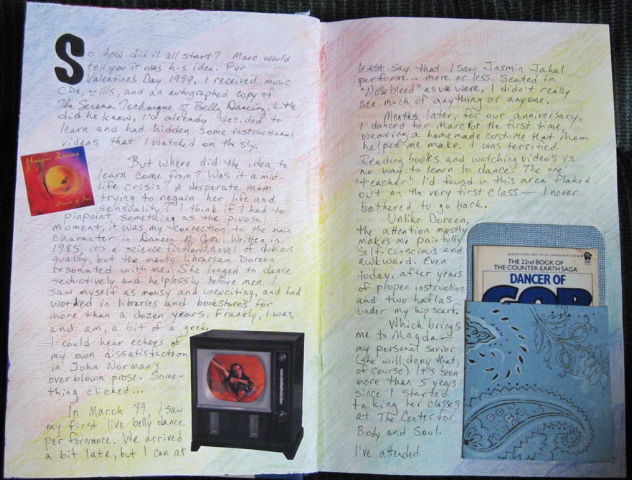 So how did it all start? Marc would
tell you it was his idea. For
Valentine's Day 1999, I received music
CDs, zills, and an autographed copy of
The Serena Technique of Belly Dancing. Little
did he know, I'd already decided to
learn and had hidden some instructional
videos that I watched on the sly.
But where did the idea to
learn come from? Was it a mid-
life crisis? A desperate mom
trying to regain her life and
sensuality? I think if I had to
pinpoint something as the pivotal
moment, it was my connection to the main
character in Dancer of Gor. Written in
1985, it's a science fiction novel of dubious
quality, but the mousy librarian Doreen
resonated with me. She longed to dance
seductively and helplessly before men. I
saw myself as mousy and unexciting, and had
worked in libraries and bookstores for
more than a dozen years. Frankly, I was,
and am, a bit of a geek.
I could hear echoes of
my own dissatisfaction
in John Norman's
overblown prose. Some-
thing clicked...
In March '99, I saw
my first live belly dance
performance. We arrived
a bit late, but I can at
least say that I saw Jasmin Jahal
perform... more or less. Seated in
"Nosebleed" as we were, I didn't really
see much of anything or anyone.
Months later, for our anniversary,
I danced for Marc for the first time,
wearing a homemade costume that Mom
helped me make. I was terrified.
Reading books and watching videos is
no way to learn to dance. The one
"teacher" I'd found in this area flaked
out on the very first class — I never
bothered to go back.
Unlike Doreen,
the attention mostly
makes me painfully
self-conscious and
awkward. Even
today, after years
of proper instruction
and two haflas
under my hip scarf.
Which brings
me to Magda -
my personal savior
(she will deny that,
of course). It's been
more than 5 years
since I started
taking her classes
at The Center for
Body and Soul.
I've attended
THE 22nd BOOK OF
THE COUNTER-EARTH SAGA
DANCER OF
GOR